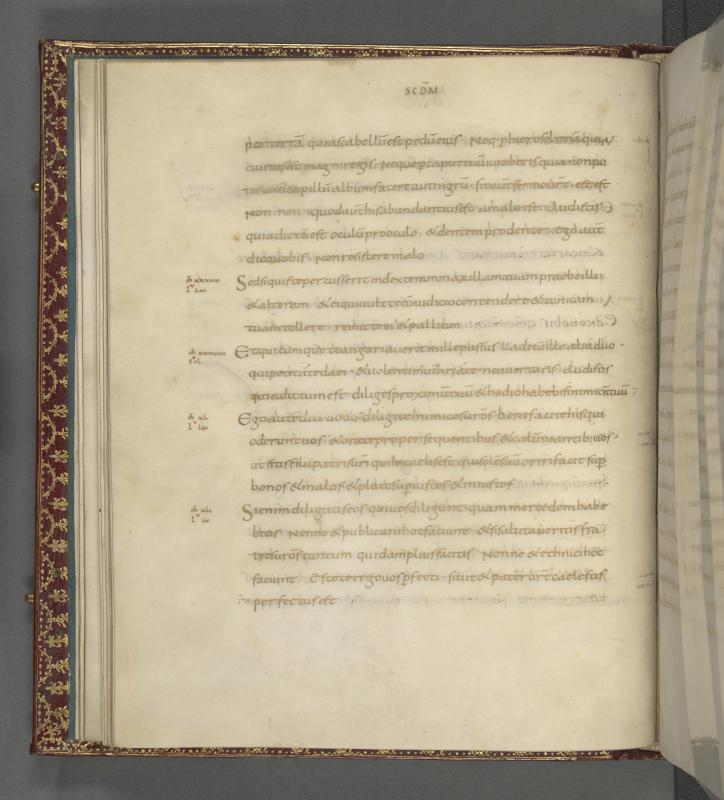 SCDM
per terrā quia scabellū est pedū eius · Neq; p hierosolimā quia
civitas est magni regis · Neque p caput tuū iuraberis quia non po
tes unū capillū album facere aut nigrū · sit aut̄ sermo · est est
Non non · quod aut̄ his abundantius est a malo est · Audistis
quia dictū est oculū pro oculo & dentem pro dente · Ego aut̄
dico vobis Non resistere malo
Sed si quis te percusserit in dexteram maxillam tuam praebe illi
& alteram · & ei qui vult tecū iudicio contendere & tunicam
tuam tollere · remitte ei & pallium
Et quicumque te angariaverit mille passus vade cū illo alia duo ·
qui petit a te da ei · & volenti mutuari a te ne avertaris · Audistis
quia dictum est · diliges proximū tuū & hodio habebis inimicū tuū
Ego aut̄ dico vobis diligite inimicos v̄ros · benefacite his qui
oderunt vos · & orate pro persequentibus & calūniantib; vos ·
ut sitis filii patris v̄ri qui in caelis est qui solē suū oriri facit sup
bonos & malos & pluit sup iustos & iniustos
Si enim diligitis eos qui vos diligunt · quam mercedem habe
bitis · Nonne & publicani hoc faciunt · & si salutaveritis fra
tres v̄ros tantum quid amplius facitis · Nonne & ethnici hoc
faciunt · Estote ergo vos pfecti · sicut & pater v̄r caelestis
perfectus est